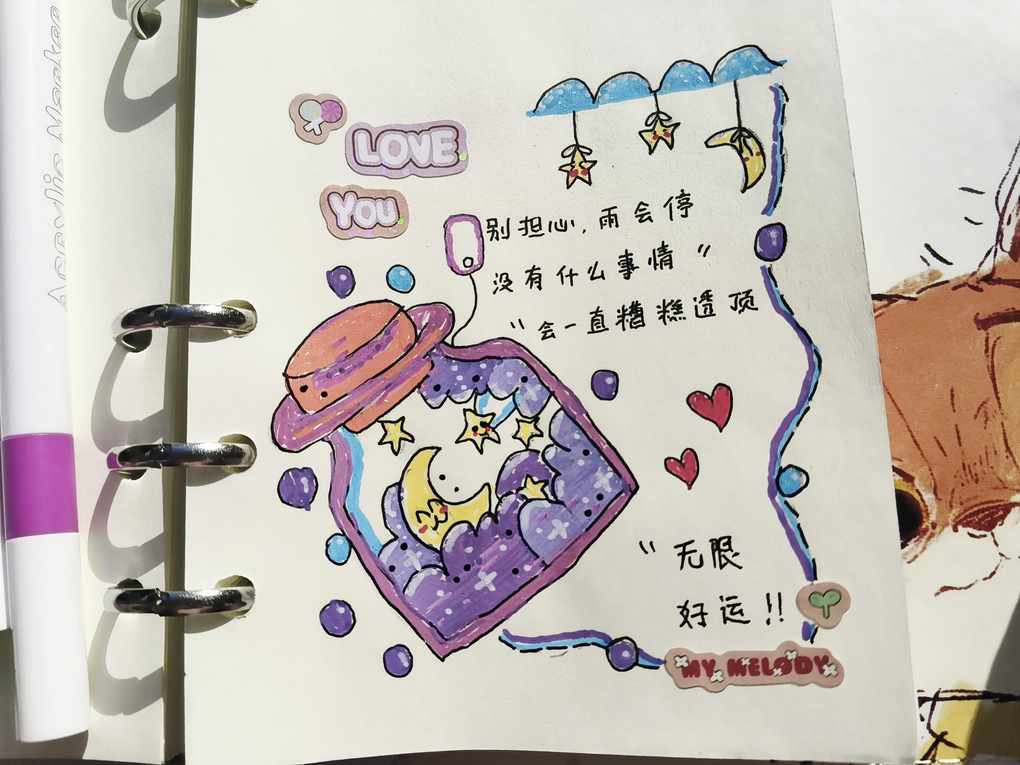 LOVE
You
别担心,雨会停
没有什么事情〃
〃会一直糟糕透顶
〃无限
好运!!
MY MELODY
Acrylic Marker